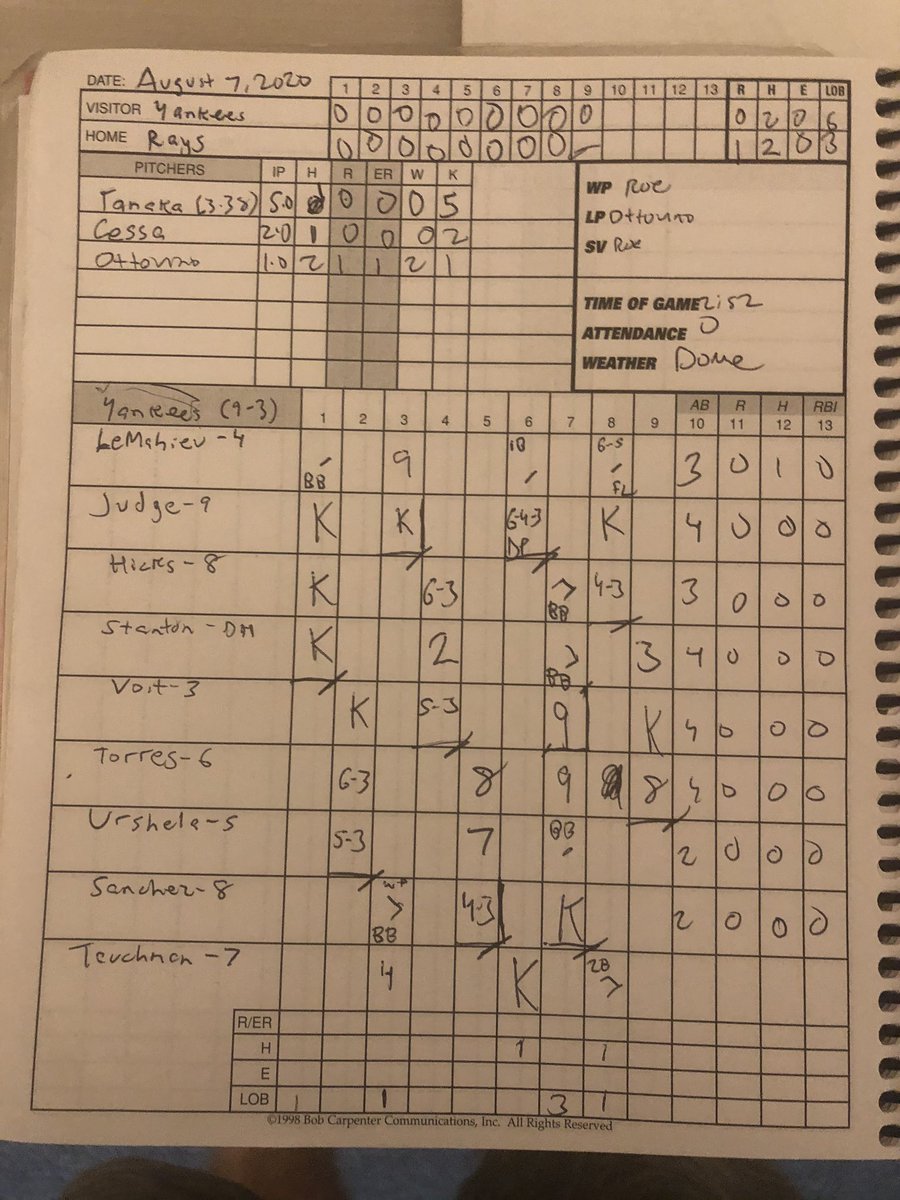 DATE: August 7, 2020
1 2 3 4 5 6 7 8 9 10 11 12 13 R H E LOB
VISITOR Yankees 0 0 0 0 0 0 0 0 0 0 2 0 6
HOME Rays 0 0 0 0 0 0 0 0 1 2 0 3
PITCHERS IP H R ER W K
Tanaka (3.38) 5.0 0 0 0 5
Cessa 2.0 1 0 0 0 2
Ottovino 1.0 2 1 1 2 1
WP Roe
LP Ottovino
SV Roe
TIME OF GAME 2:52
ATTENDANCE 0
WEATHER Dome
Yankees (9-3) 1 2 3 4 5 6 7 8 9 AB 10 R 11 H 12 RBI 13
LeMahieu-4 BB 9 1B 6-5 FL 3 0 1 0
Judge-9 K K 6-4-3 DP K 4 0 0 0
Hicks-8 K 6-3 BB 4-3 3 0 0 0
Stanton-DH K 2 BB 3 4 0 0 0
Voit-3 K 5-3 9 K 4 0 0 0
Torres-6 6-3 8 9 8 4 0 0 0
Urshela-5 5-3 7 BB 2 0 0 0
Sanchez-8 WP BB 4-3 K 2 0 0 0
Tauchman-7 4 K 2B
R/ER
H 1 1
E
LOB 1 1 3 1
©1998 Bob Carpenter Communications, Inc. All Rights Reserved